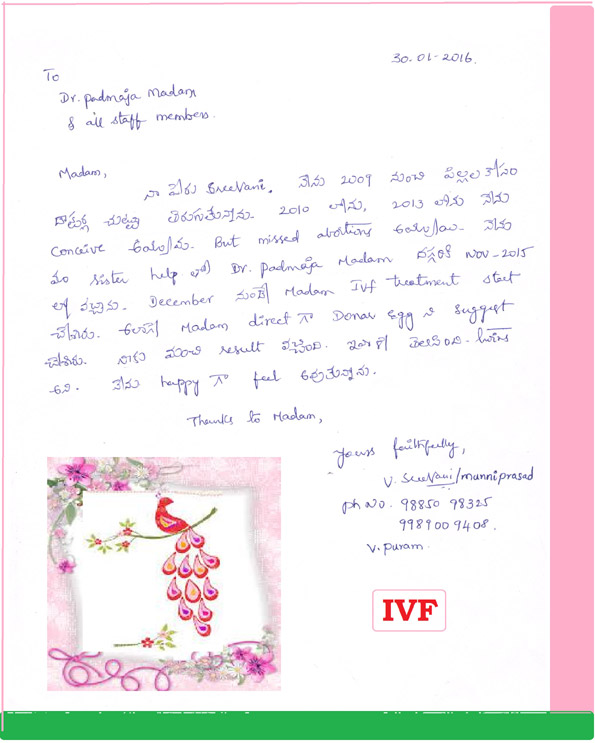 30-01-2016.
To
Dr. Padmaja Madam
& all staff members.
Madam,
నా పేరు SreeVani. నేను 2009 నుంచి పిల్లల కోసం
చుట్టూ తిరుగుతున్నాను. 2010 లోను, 2013 లోను నేను
Conceive అయ్యాను. But missed abortions అయ్యాయి. నేను
మా sister help తో Dr. Padmaja Madam దగ్గరికి NOV-2015
లో వచ్చాను. December నుండి Madam IVF treatment start
చేశారు. Madam direct గా Donar Egg ని suggest
చేశారు. నాకు మంచి result వచ్చింది. తెలిసింది. twins
అని. నేను happy గా feel అవుతున్నాను.
Thanks to Madam,
Yours faithfully,
V. SreeVani/munniprasad
ph No. 98850 98325
9989009408.
V. puram.
IVF